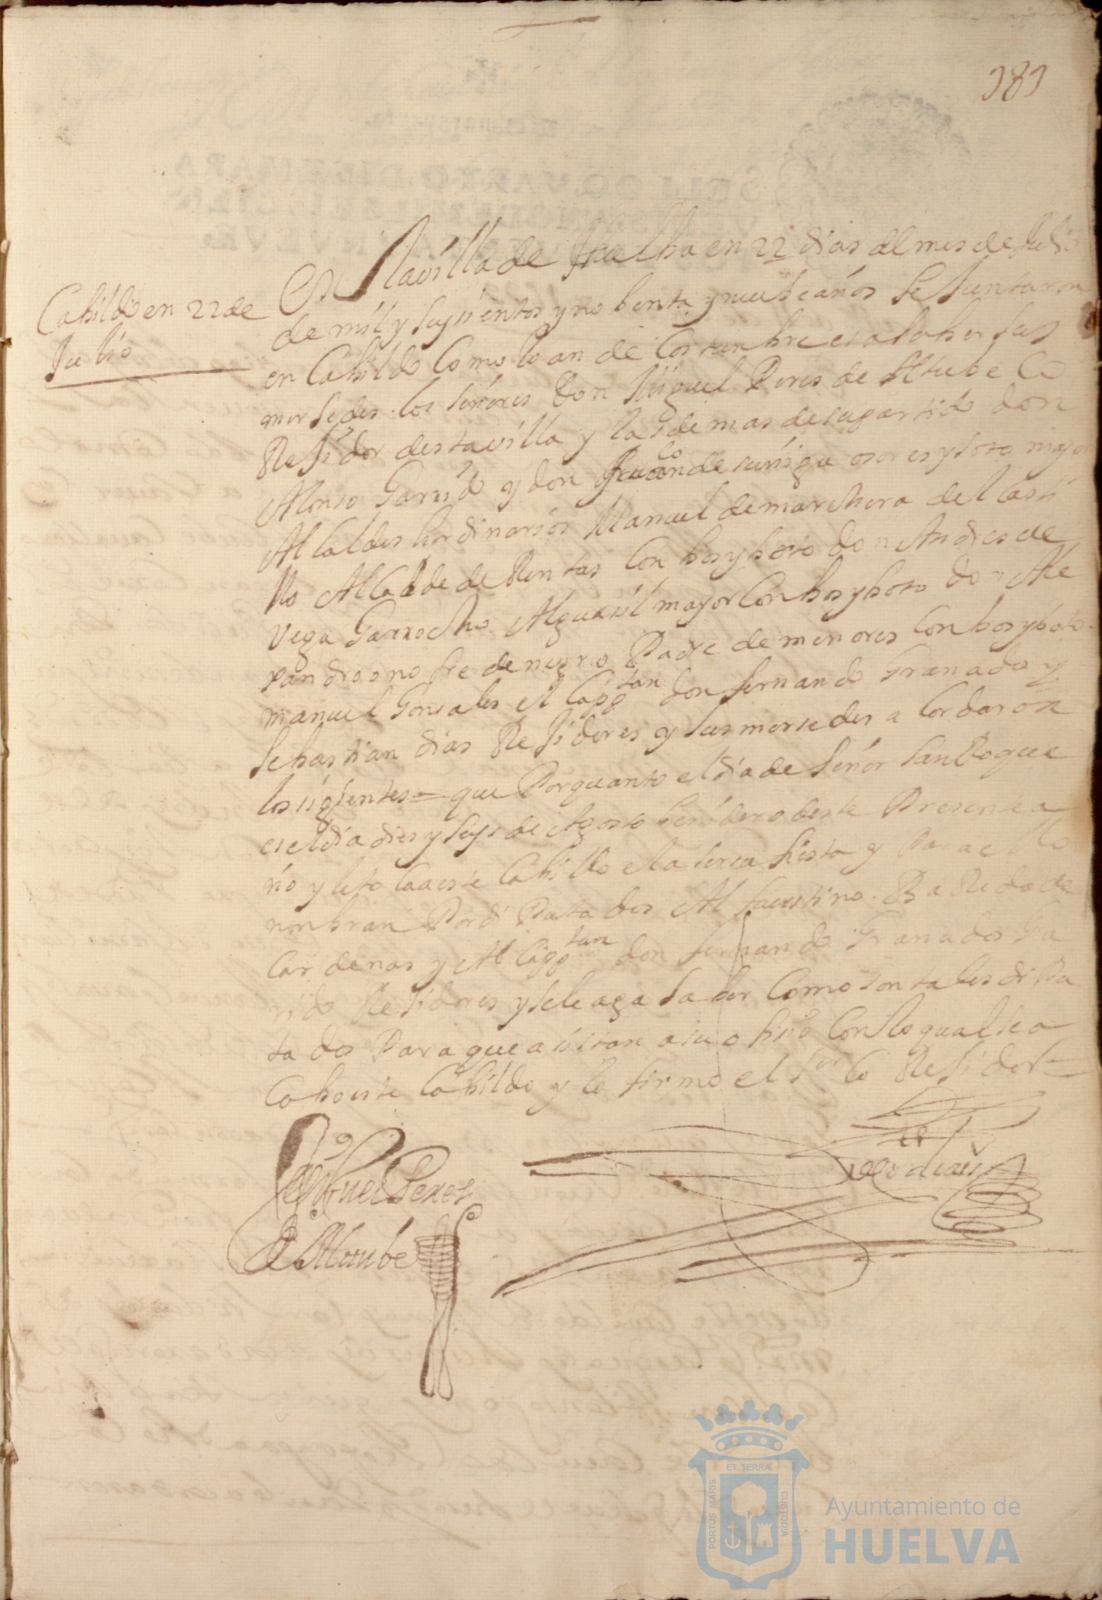 181
Cabildo en 22 de
Julio
En la villa de Huelba en 22 dias del mes de Julio
de mil y seysientos y nobenta y nuebe años se juntaron
en Cabildo como lo an de costumbre es a saber sus
mersedes los señores Don Miguel Peres de Altube Co
Rejidor desta villa y las demas de su partido don
Alonso Garrido y don Franco de suñiga osores y soto mayor
Alcaldes hordinarios Manuel de marchera del Casti
llo Alcalde de Rentas con bos y boto don Andres de
Vega Garrocho Alguasil mayor con bos y boto Don Ale
xandro onofre de negro Padre de menores con bos y boto
manuel Gonsales el Capp tan don fernando Granado y
Sebastian dias Rejidores y sus mersedes acordaron
lo siguiente = que Porquanto el dia de señor San Roque
es el dia dies y seys de Agosto benidero deste Presente a
ño y le toca a este Cabildo el aser la fiesta y Para ello
nonbran Por diputados Al faustino Ba Reda de
Cardenas y Al Capp tan don fernando Granado Ga
rrido Rejidores y se le aga saber como son tales dipu
tados Para que asistan a su ofisio Con lo qual se a
cabo este Cabildo y lo firmo el Sor Co Rejidor =
Dn Miguel Peres
de Altube
PORTUS MARIS ET TERRÆ CUSTODIA
Ayuntamiento de
HUELVA